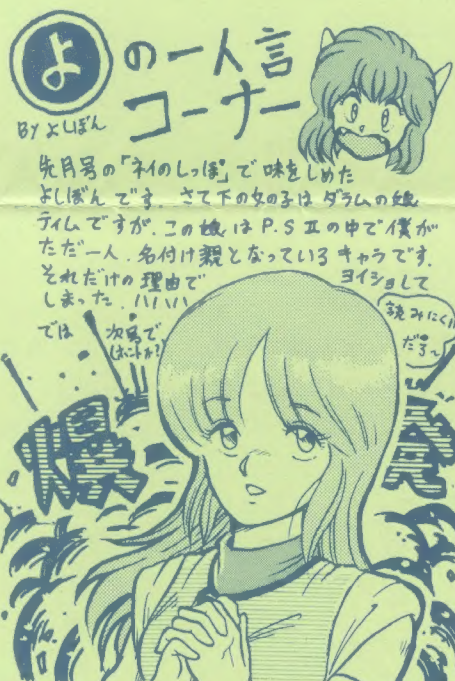 よの一人言
コーナー
BY よしぼん
先月号の「ネイのしっぽ」で味をしめた
よしぼんです。さて下の女の子はダラムの娘
ティムですが、この娘はP.S IIの中で僕が
ただ一人、名付け親となっているキャラです。
それだけの理由でヨイショして
しまった。ハハハハ
では次号で
(ホントか?)
読みにくい
だろ～
爆発